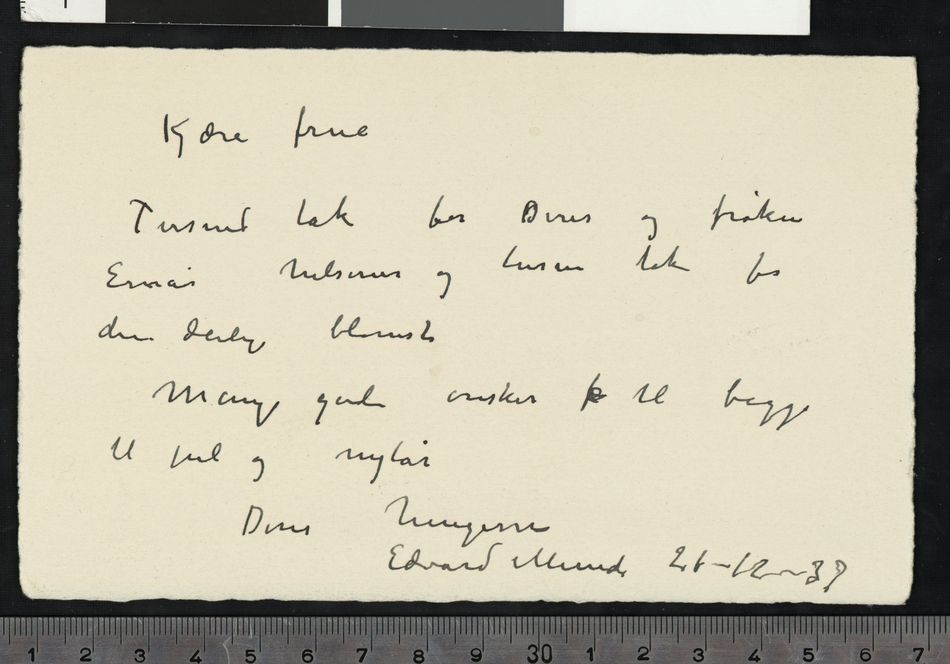 Kjære frue
Tusind tak for Deres og frøken
Ernas hilsener og tusen tak for
den deilige blomst
Mange gode ønsker til begge
til jul og nytår
Deres hengivne
Edvard Munch 21-12-39
1 2 3 4 5 6 7 8 9 30 1 2 3 4 5 6 7